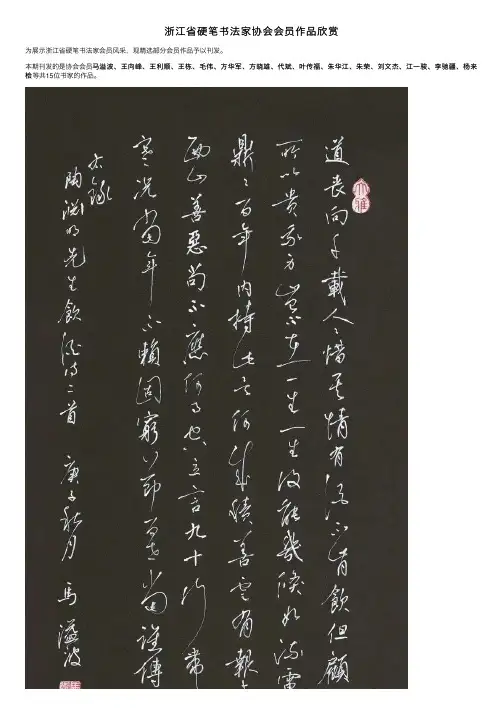 浙江省硬笔书法家协会会员作品欣赏
为展示浙江省硬笔书法家会员风采，现精选部分会员作品予以刊发。
本期刊发的是协会会员马溢波、王向峰、王利顺、王栋、毛伟、方华军、方晓雄、代斌、叶传福、朱华江、朱荣、刘文杰、江一骏、李驰疆、杨来
桧等共15位书家的作品。
大雅
道喪向千載人〻惜其情有酒不肯飲但顧
所以貴我身豈不在一生一生復能幾倏如流電
鼎〻百年內持此欲何成積善云有報
西山善惡苟不應何事空立言九十行帶
寒況當年不賴固窮節百世當誰傳
右錄
陶淵明先生飲酒詩二首 庚子秋月 馬溢波